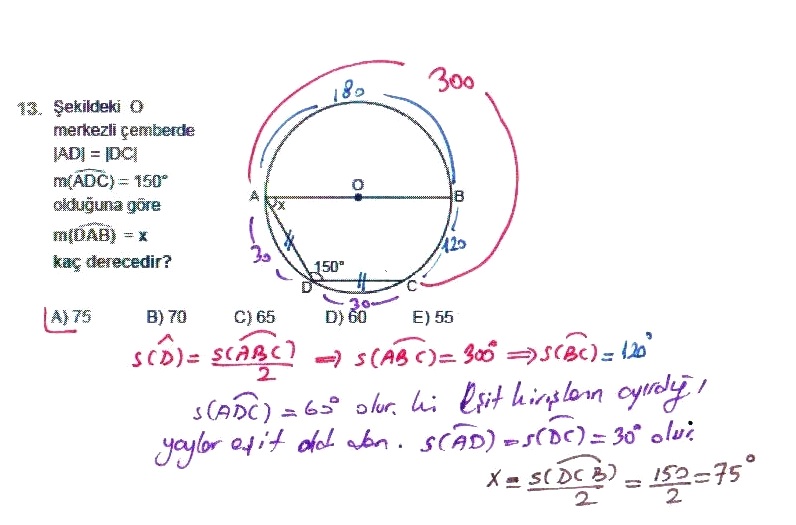 300
180
13. Şekildeki O
merkezli çemberde
|AD| = |DC|
m(ADC) = 150°
olduğuna göre
m(DAB) = x
kaç derecedir?
O
A x B
120
30
150°
D C
30
A) 75 B) 70 C) 65 D) 60 E) 55
s(D) = s(ABC)/2 ⇒ s(ABC) = 300° ⇒ s(BC) = 120°
s(ADC) = 60° olur. ki Eşit kirişlerin ayırdığı
yaylar eşit old. dan. s(AD) = s(DC) = 30° olur.
x = s(DCB)/2 = 150/2 = 75°